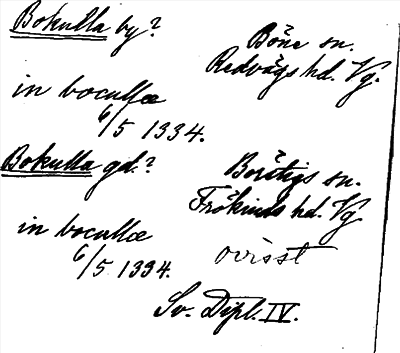 Bokulla by? Böne sn.
Redvägs hd. Vg.
in boculle
6/5 1334.
Bokulla gd.? Borstigs sn.
Frökinds hd. Vg.
in boculle
6/5 1334. ovisst
Sv. Dipl. IV.